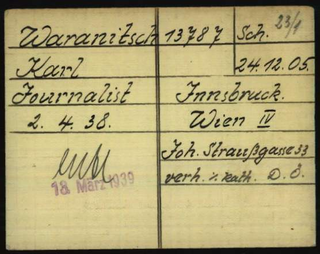 23/1
Waranitsch 13787 Sch.
Karl 24.12.05.
Journalist Innsbruck.
2. 4. 38. Wien IV
Joh. Straußgasse 33
18. März 1939
verh. r. kath. D. Ö.